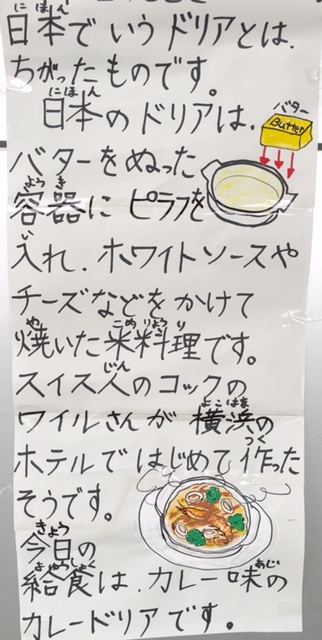 日本でいうドリアとは、
ちがったものです。
日本のドリアは、
バター
Butter
バターをぬった
容器に ピラフを
入れ、ホワイトソースや
チーズなどをかけて
焼いた米料理です。
スイス人のコックの
ワイルさんが 横浜の
ホテルではじめて作った
そうです。
今日の
給食は、カレー味の
カレードリアです。